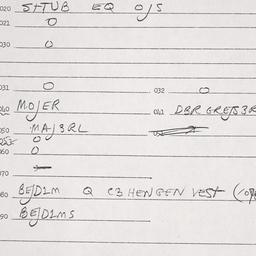 020 S/TUB EQ O/S
021 O
030 O
031 O 032 O
040 MOJER 041 DBR GRETS3R
050 MAJ3RL
060 O
070 —
080 BE/D1M Q C3 HENGEN VEST
090 BE/D1MS